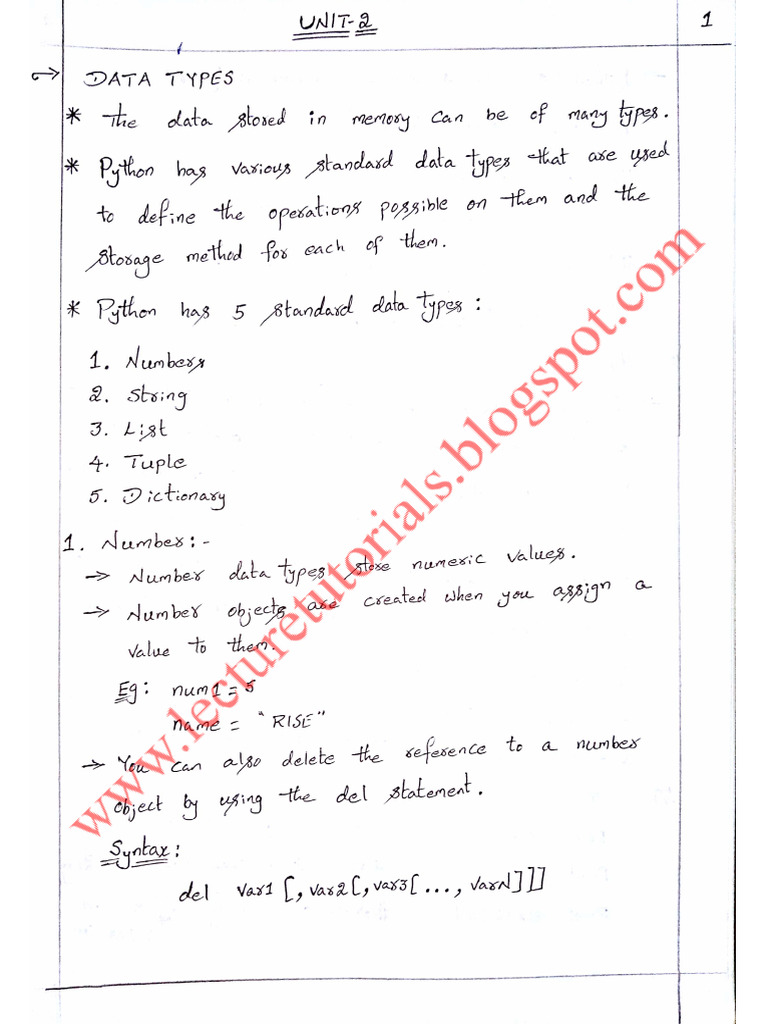 UNIT-2
1
DATA TYPES
* The data stored in memory can be of many types.
* Python has various standard data types that are used
to define the operations possible on them and the
storage method for each of them.
* Python has 5 standard data types :
1. Numbers
2. String
3. List
4. Tuple
5. Dictionary
1. Number:-
→ Number data types store numeric values.
→ Number objects are created when you assign a
value to them.
Eg: num1 = 5
name = "RISE"
→ You can also delete the reference to a number
object by using the del statement.
Syntax:
del var1 [, var2 [, var3 [..., varN]]]
www.lecturetutorials.blogspot.com